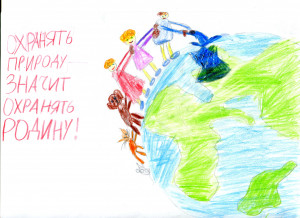 ОХРАНЯТЬ
ПРИРОДУ
ЗНАЧИТ
ОХРАНЯТЬ
РОДИНУ!